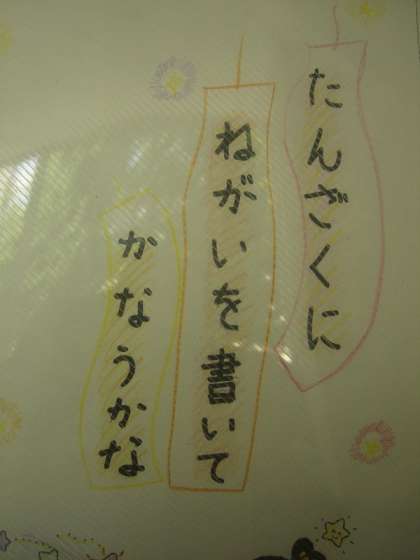 たんざくに
ねがいを書いて
かなうかな